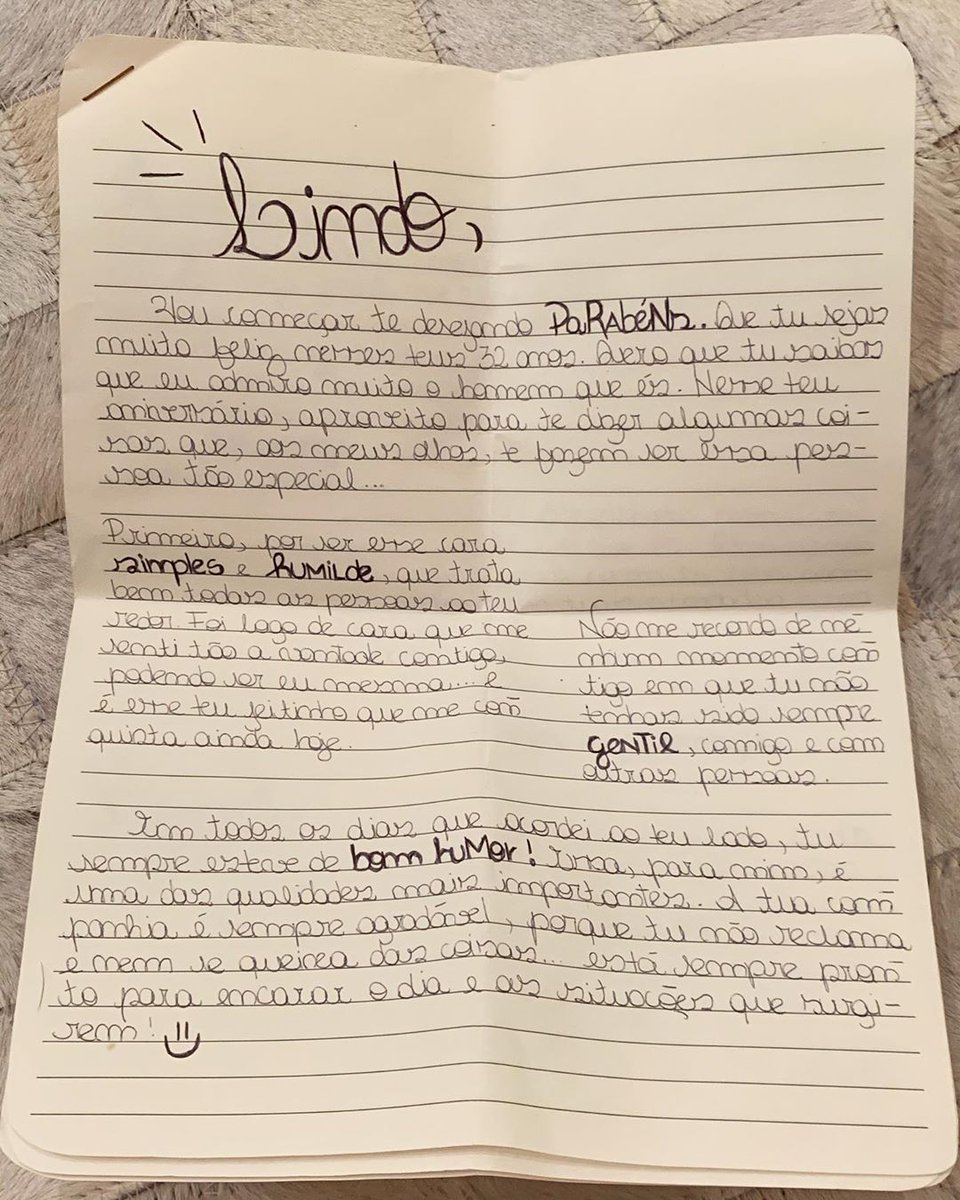 Lindo,
Vou começar te desejando PaRAbéNs. Que tu sejas
muito feliz nesses teus 32 anos. Quero que tu saibas
que eu admiro muito o homem que és. Nesse teu
aniversário, aproveito para te dizer algumas coi-
sas que, aos meus olhos, te fazem ser essa pes-
soa tão especial...
Primeiro, por ser esse cara
simples e HUMILDE, que trata
bem todas as pessoas ao teu
redor. Foi logo de cara que me
senti tão a vontade contigo,
podendo ser eu mesma... e
é esse teu jeitinho que me con
quista ainda hoje.
Não me recordo de ne
nhum momento con
tigo em que tu não
tenhas sido sempre
GENTIL, comigo e com
outras pessoas.
Em todos os dias que acordei ao teu lado, tu
sempre esteve de bom huMor! Isso, para mim, é
uma das qualidades mais importantes. A tua com
panhia é sempre agradável, porque tu não reclama
e nem se queixa das coisas... está sempre pron
to para encarar o dia e as situações que surgi-
rem!